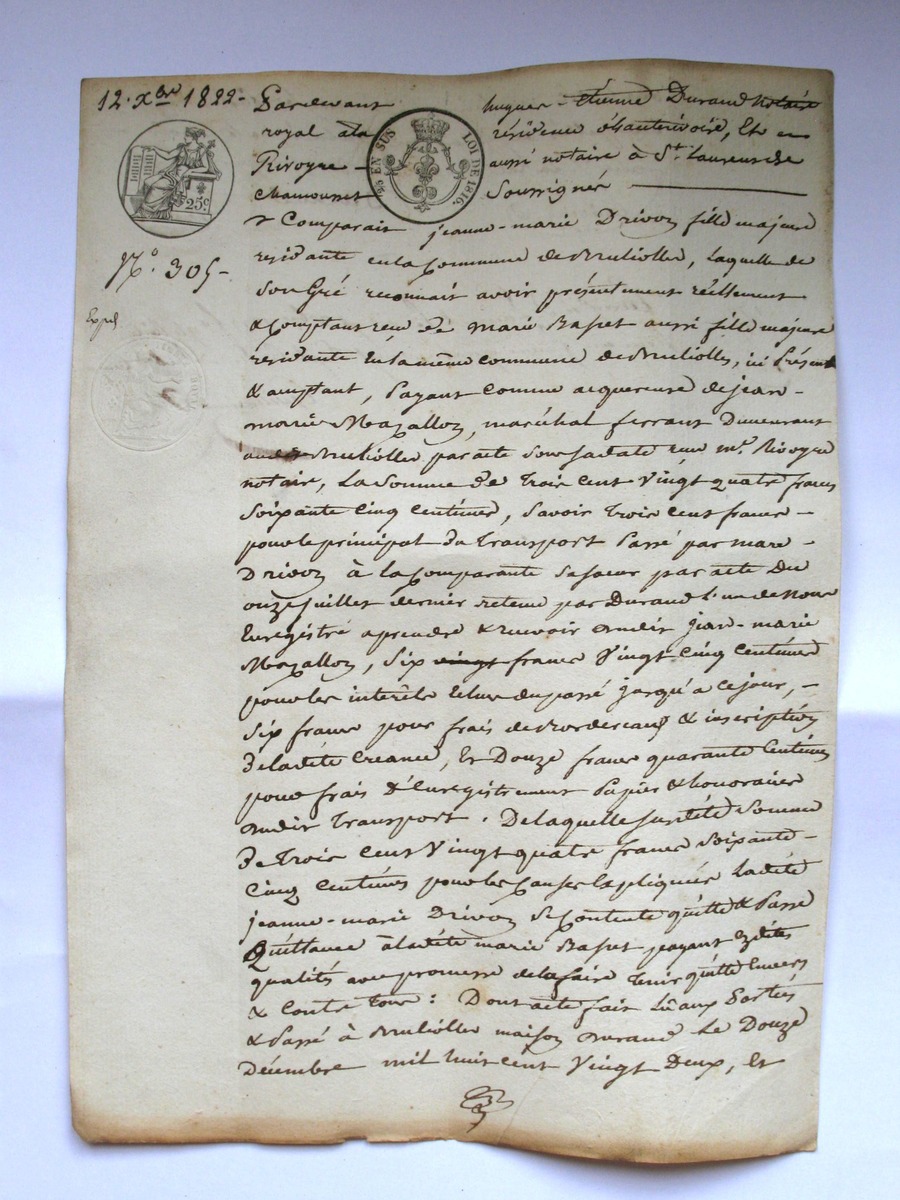 12. xbre 1822 -
Pardevant hugues - étienne Durand Notaire
royal à la résidence d'hauterivoire, Et en
Rivoyre - aussi notaire à St. Laurent de
Chamousset Soussignés
25c.
2/95 EN SUS LOI DE 1816.
N.o 305 -
Expd.
Comparait jeanne - marie Drivon fille majeure
residante en la Commune de Brullolles, Laquelle de
Son Gré reconnait avoir présentement réellement
& Comptant reçu de marie Basset aussi fille majeure
residante En la même commune de Brullolles, ici Présente
& acceptant, Payant Comme acquereuse de jean -
marie Mazallon, maréchal ferrant Demeurant
Brullolles par acte Sous sa date reçu me. Rivoyre
notaire, La Somme de Trois Cent Vingt quatre francs
Soixante Cinq Centimes, Savoir Trois Cent francs -
pour le principal du Transport Passé par marie -
Drivon à la Comparante Sa Soeur par acte Du
onze juillet dernier retenu par Durand l'un de Nous
Enregistré a prendre & recevoir dudit jean - marie
Mazallon, Six vingt francs Vingt Cinq Centimes
pour les interêts Echus du passé jusqu'à ce jour, -
Six francs pour frais de Bordereau & inscription
De ladite Creance, Et Douze francs quarante Centimes
pour frais D'Enregistrement Papier & honoraires
dudit Transport. De laquelle Susdite Somme
de Trois Cent Vingt quatre francs Soixante -
Cinq Centimes pour les Causes Expliquées Ladite
jeanne - marie Drivon Se Contente quitte & Passe
Quittance à ladite marie Basset payant Esdites
qualités avec promesse de la faire Tenir quitte Envers
& Contre Tous : Dont acte fait Lû aux Parties
& Passé à Brullolles maison Durand Le Douze
Décembre mil huit cent Vingt Deux, Et